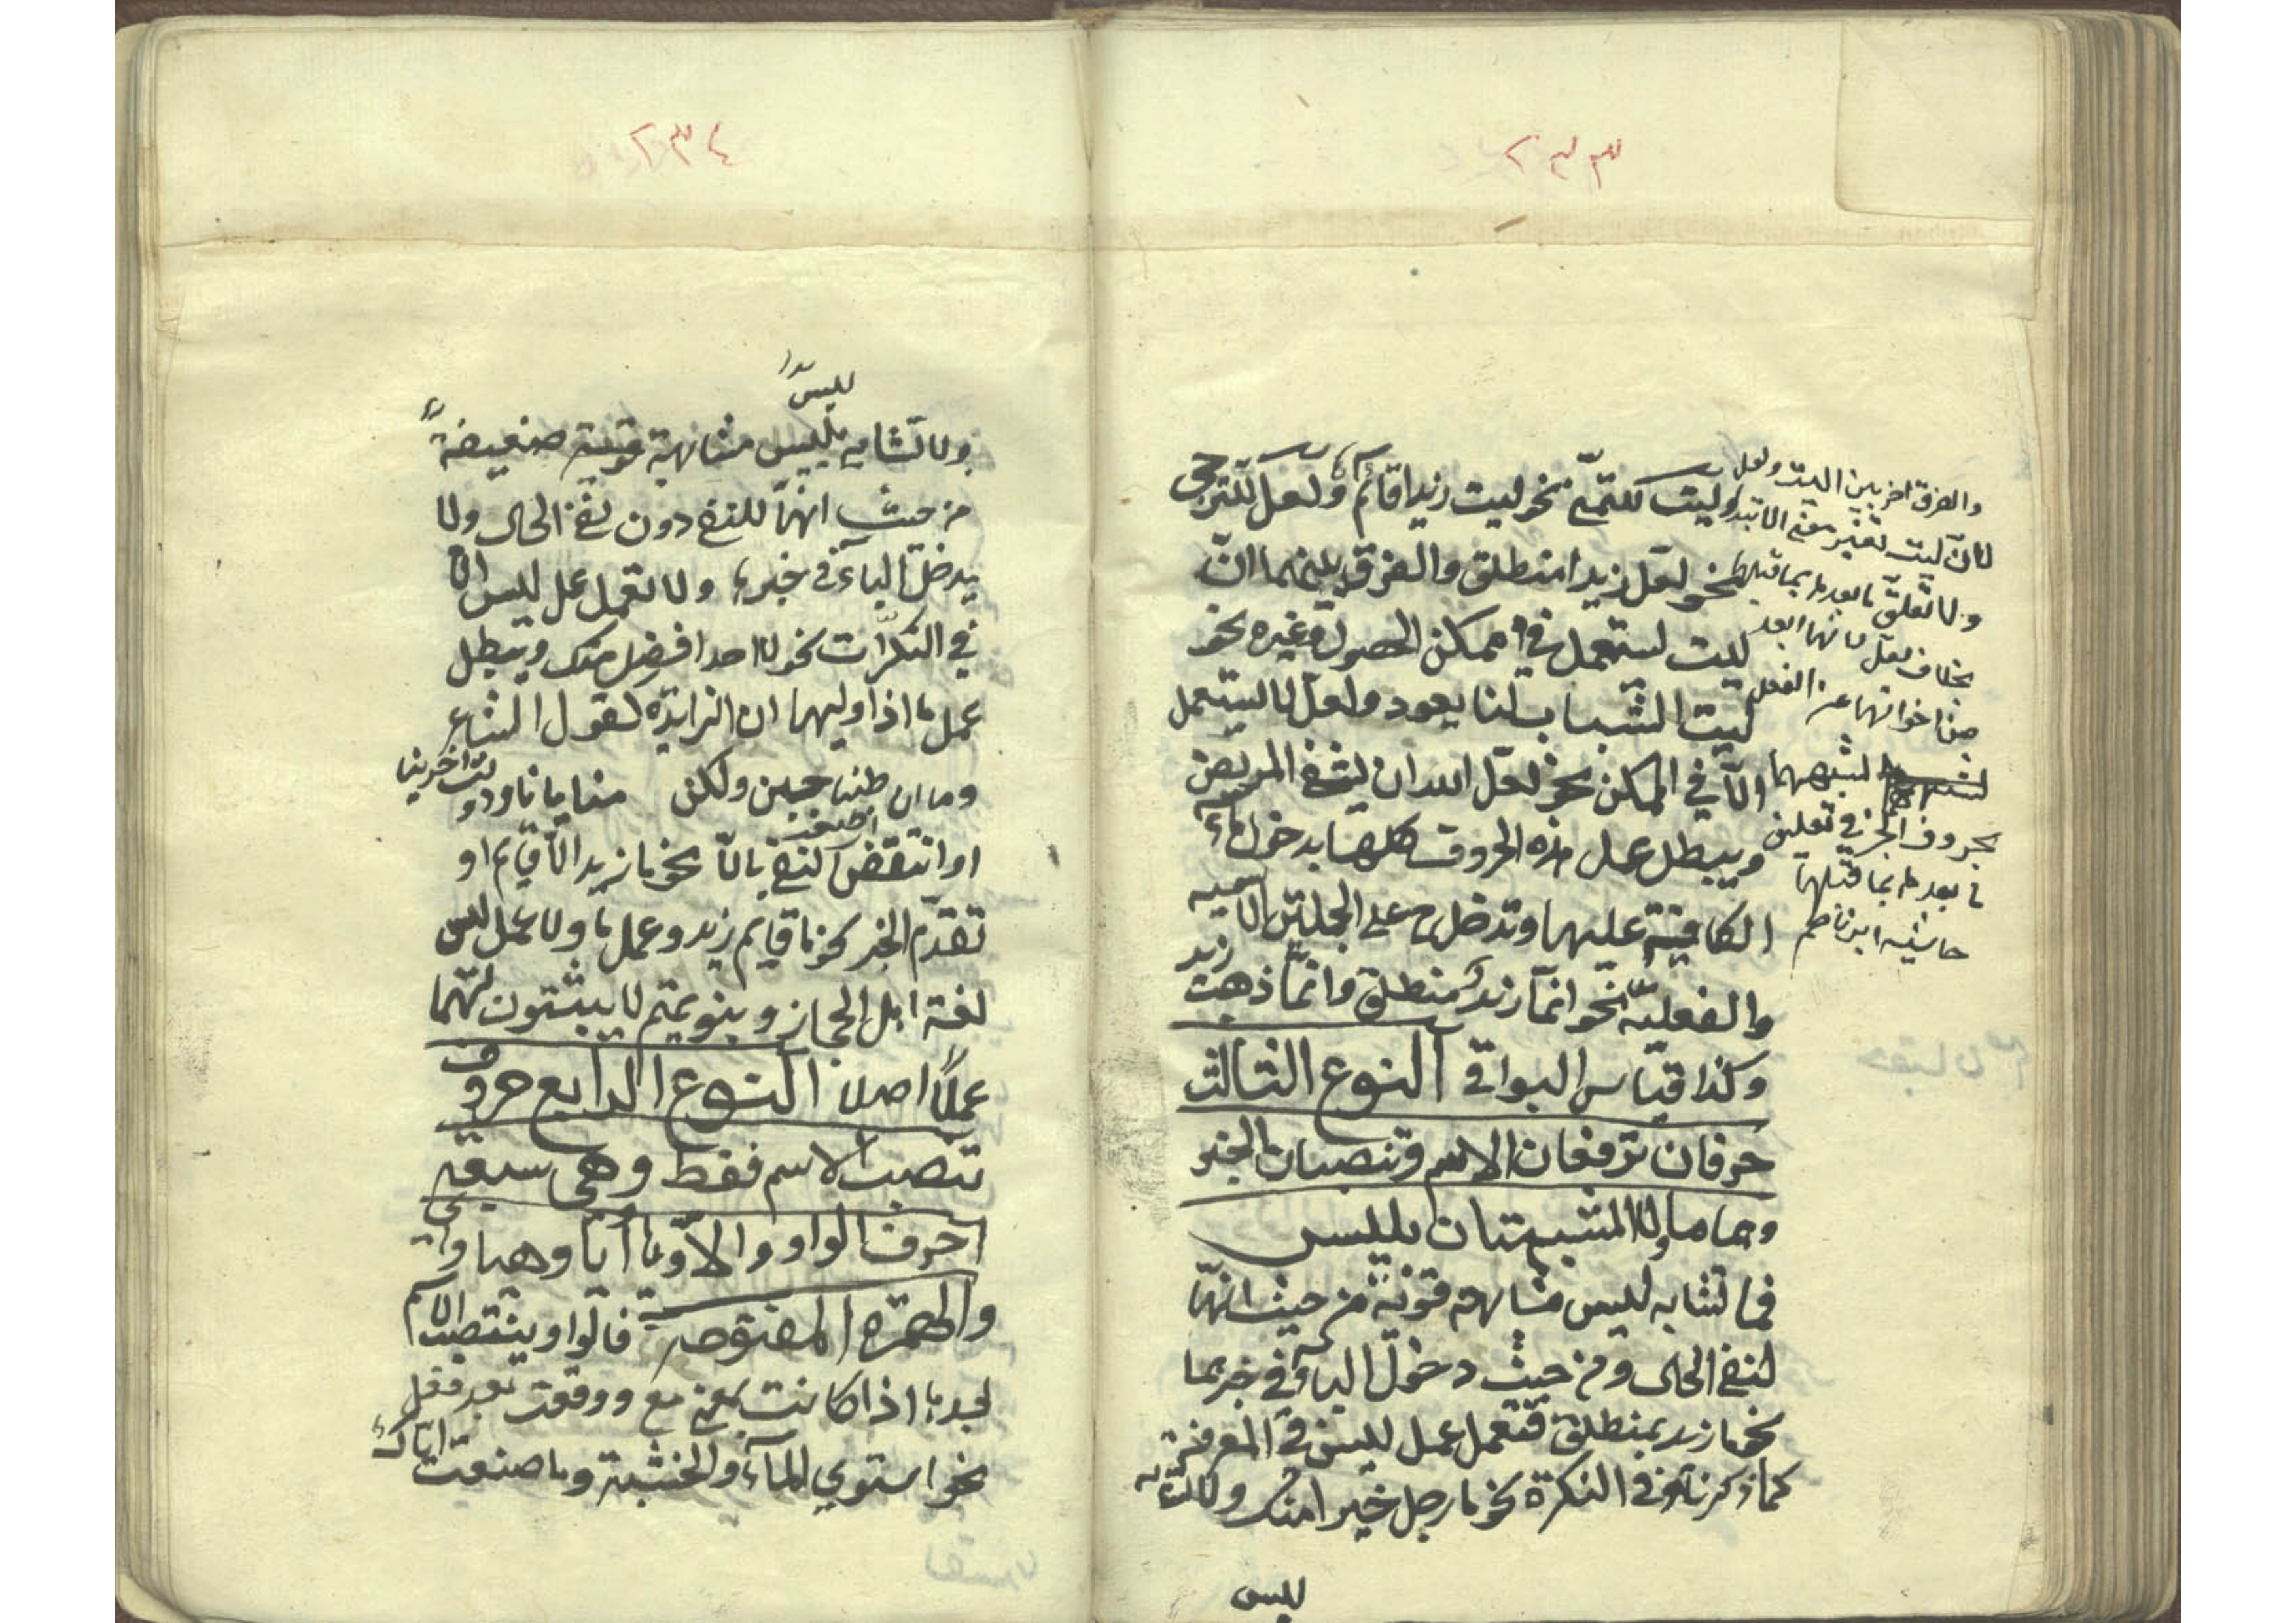 ٢٣٣
وليت للتمنّي نحو ليت زيدا قائم ولعلّ للترجي
نحو لعلّ زيدا منطلق والفرق بينهما انّ
ليت يستعمل في ممكن الحصول وغيره نحو
ليت الشباب لنا يعود ولعلّ لا يستعمل
الّا في الممكن نحو لعلّ الله ان يشفي المريض
ويبطل عمل هذه الحروف كلها بدخول ما
الكافية عليها وتدخل ح على الجملتين الاسميه
والفعليّة نحو انّما زيد منطلق وانّما ذهب زيد
وكذا قياس البواقي النوع الثالث
حرفان ترفعان الاسم وتنصبان الخبر
وهما ما ولا المشبهتان بليس
فما تشابه ليس مشابهة قوية من حيث انّها
لنفي الحال ومن حيث دخول الباء في خبرها
نحو ما زيد بمنطلق فتعمل عمل ليس في المعرفة
كما ذكرنا وفي النكرة نحو ما رجل خيرا منك ولا تشابه
ليس
والفرق اخر بين ليت ولعل
لانّ ليت تغير معنى الابتداء
ولا تعلق ما بعدها بما قبلها
بخلاف لعل لانها ابعد
من اخواتها عن الفعل
لشبهها
بحروف الجر في تعليق
ما بعدها بما قبلها
حاشيه ابن ناظم
٢٣٤
ليس
ولا تشابه بليس مشابهة قوية ضعيفة
من حيث انهّا للنفي دون نفي الحال ولا
يدخل الباء في خبرها ولا تعمل عمل ليس الّا
في النكرات نحو لا احد افضل منك ويبطل
عمل ما اذا وليها ان الزايدة كقول الشاعر
وما ان طبنا جبن ولكن منايانا ودولت اخرينا
او انتقض النفي بالّا نحو ما زيد الّا قايم او
تقدّم الخبر نحو ما قايم زيد وعمل ما ولا عمل ليس
لغة اهل الحجاز وبنو تميم لا يثبتون لهما
عملًا اصلا النوع الرابع حروف
تنصب الاسم فقط وهى سبعة
احرف الواو والّا ويا أيا وهيا واي
والهمزة المفتوحة فالواو ينتصب الاسم
بعدها اذا كانت بمعنى مع ووقعت بعد فعل
نحو استوي الماء والخشبة وما صنعت واباك